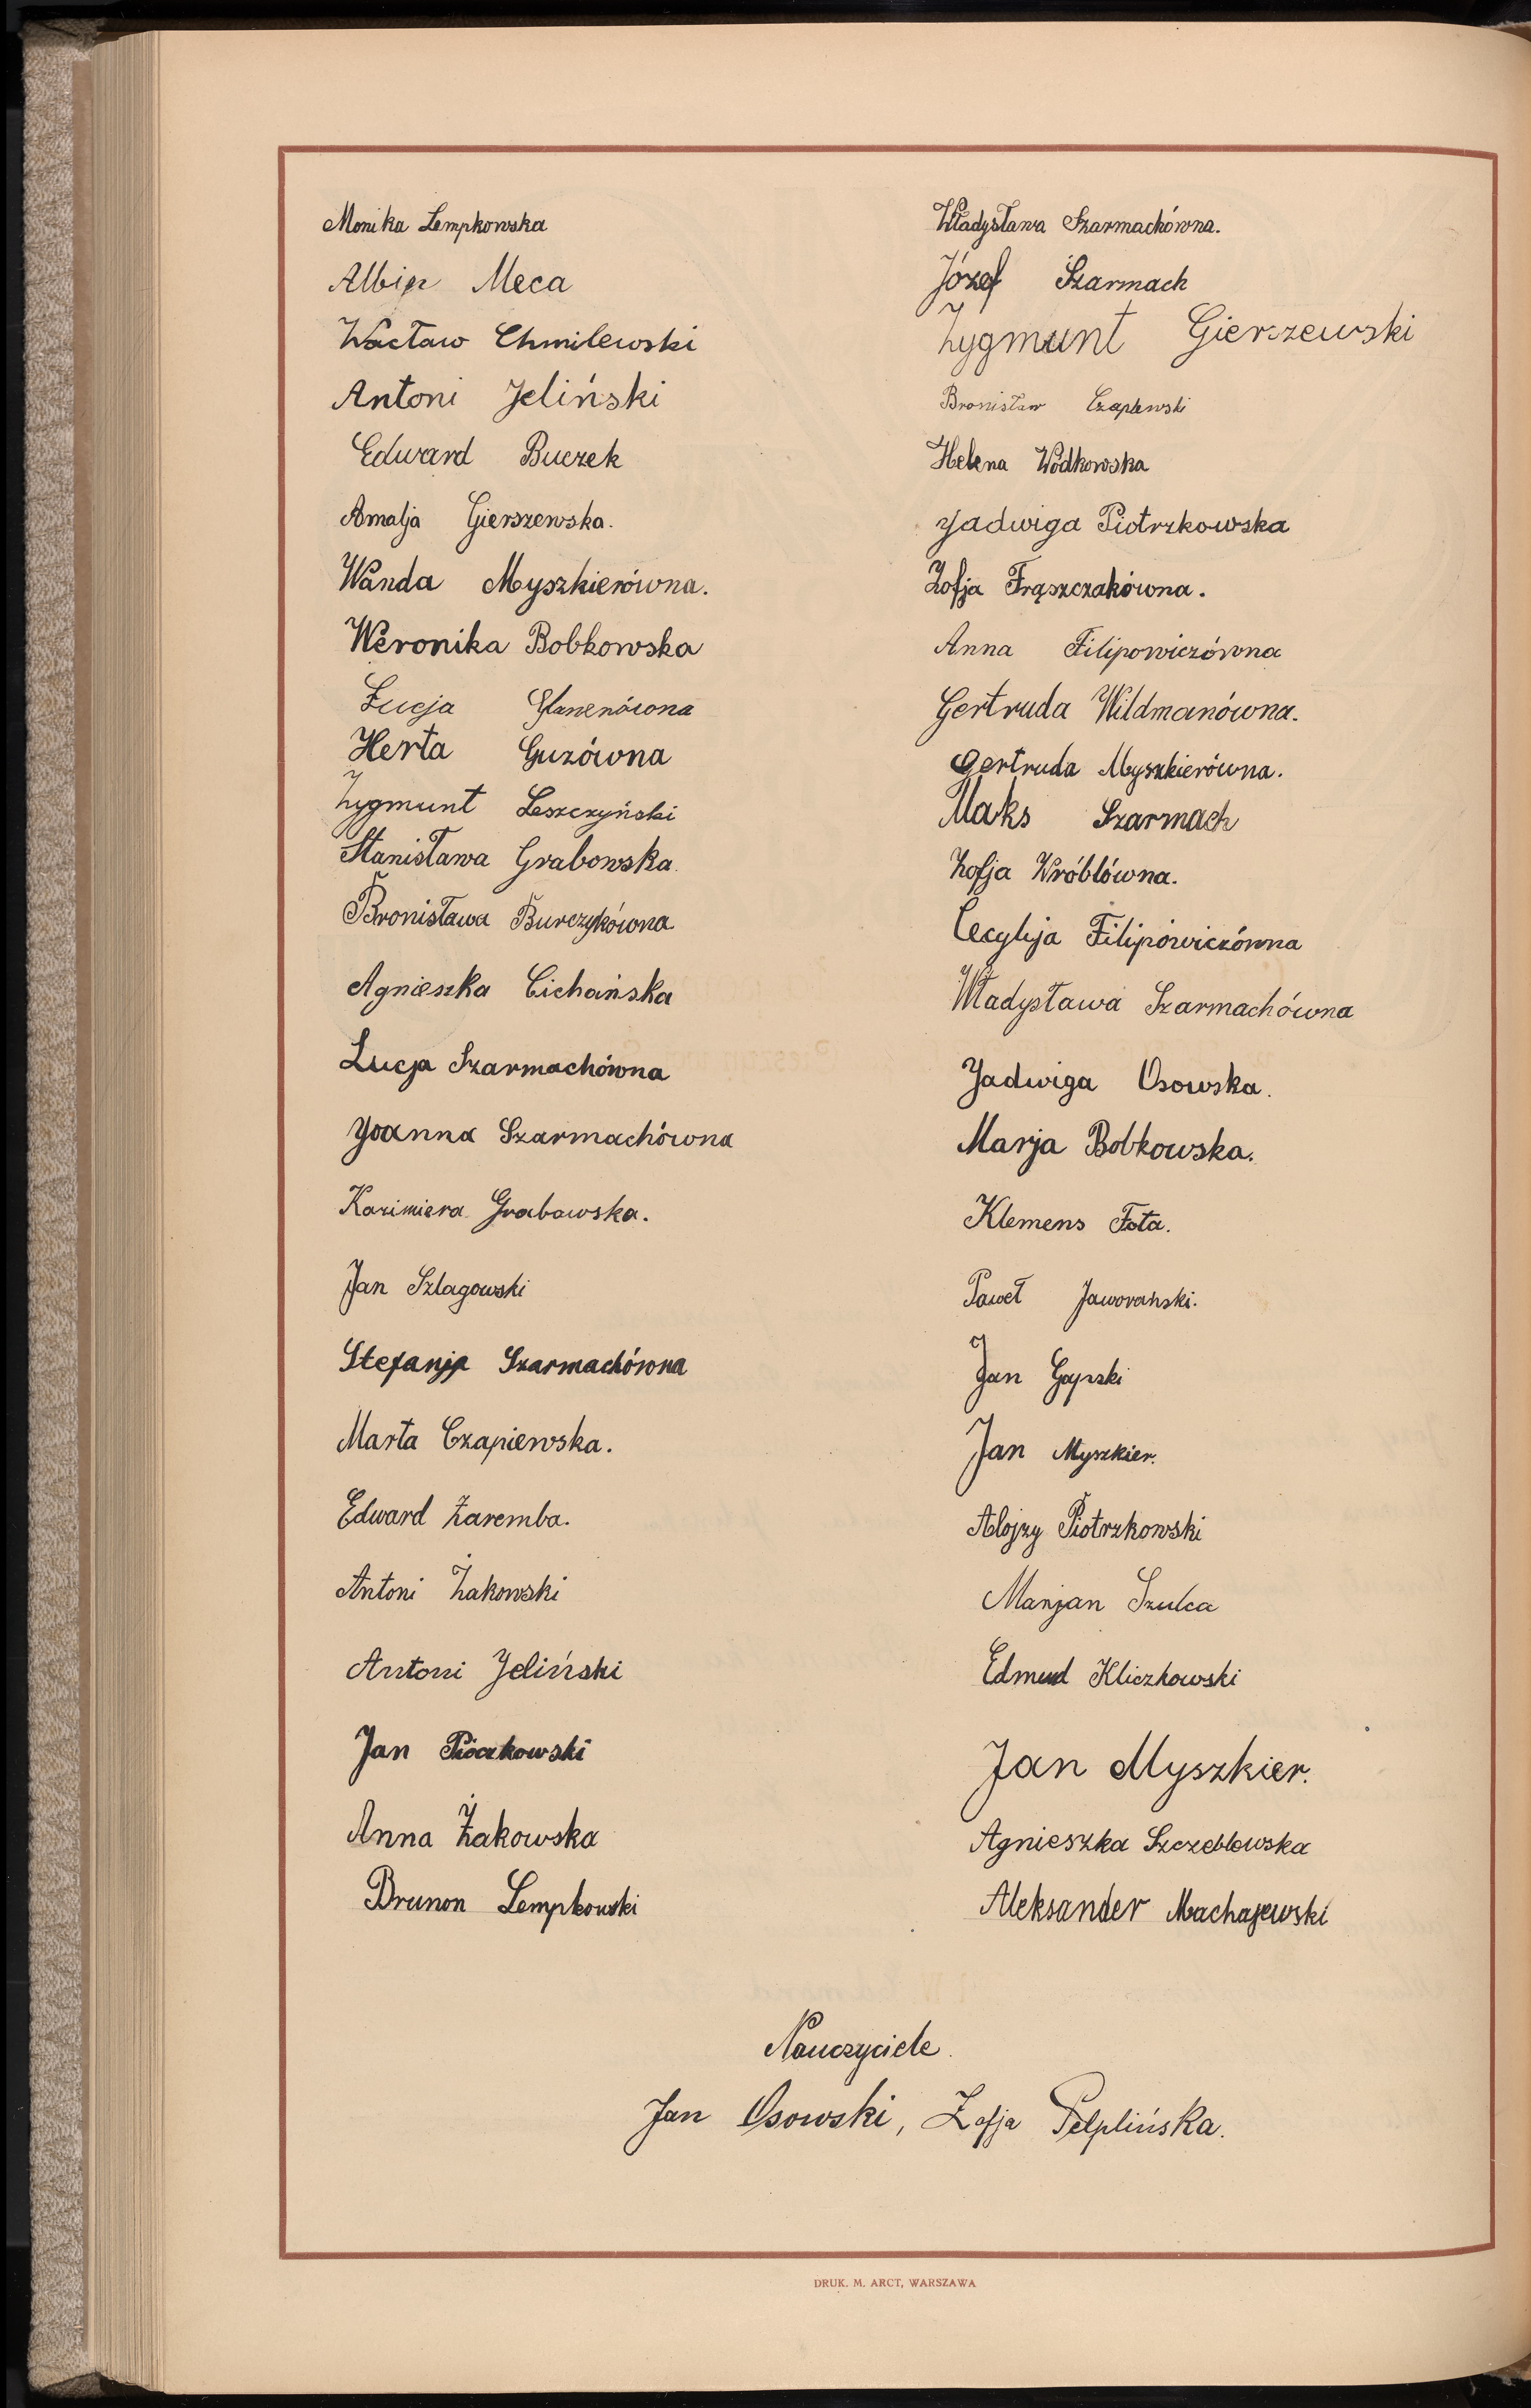 Monika Lempkowska
Albin Meca
Wacław Chmilewski
Antoni Jeliński
Edward Buczek
Amalja Gierszewska.
Wanda Myszkierówna.
Weronika Bobkowska
Łucja
Herta Guzówna
Zygmunt Leszczyński
Stanisława Grabowska
Bronisława Burczykówna
Agnieszka Cichańska
Łucja Szarmachówna
Joanna Szarmachówna
Kazimiera Grabowska.
Jan Szlagowski
Stefanja Szarmachówna
Marta Czapiewska.
Edward Zaremba.
Antoni Żakowski
Antoni Jeliński
Jan
Anna Żakowska
Brunon Lempkowski
Władysława Szarmachówna.
Józef Szarmach
Zygmunt Gierszewski
Bronisław Czaplewski
Helena Wódkowska
Jadwiga Piotrzkowska
Zofja Frąszczakówna.
Anna Filipowiczówna
Gertruda Wildmanówna.
Gertruda Myszkierówna.
Maks Szarmach
Zofja Wróblówna.
Cecylja Filipowiczówna
Władysława Szarmachówna
Jadwiga Osowska.
Marja Bobkowska.
Klemens Fota.
Paweł Jaworański.
Jan Gapski
Jan Myszkier.
Alojzy Piotrzkowski
Marjan Szulca
Edmud Kliczkowski
Jan Myszkier.
Agnieszka Szczeblewska
Aleksander Machajewski
Nauczyciele.
Jan Osowski, Zofja Pelplińska.
DRUK. M. ARCT, WARSZAWA